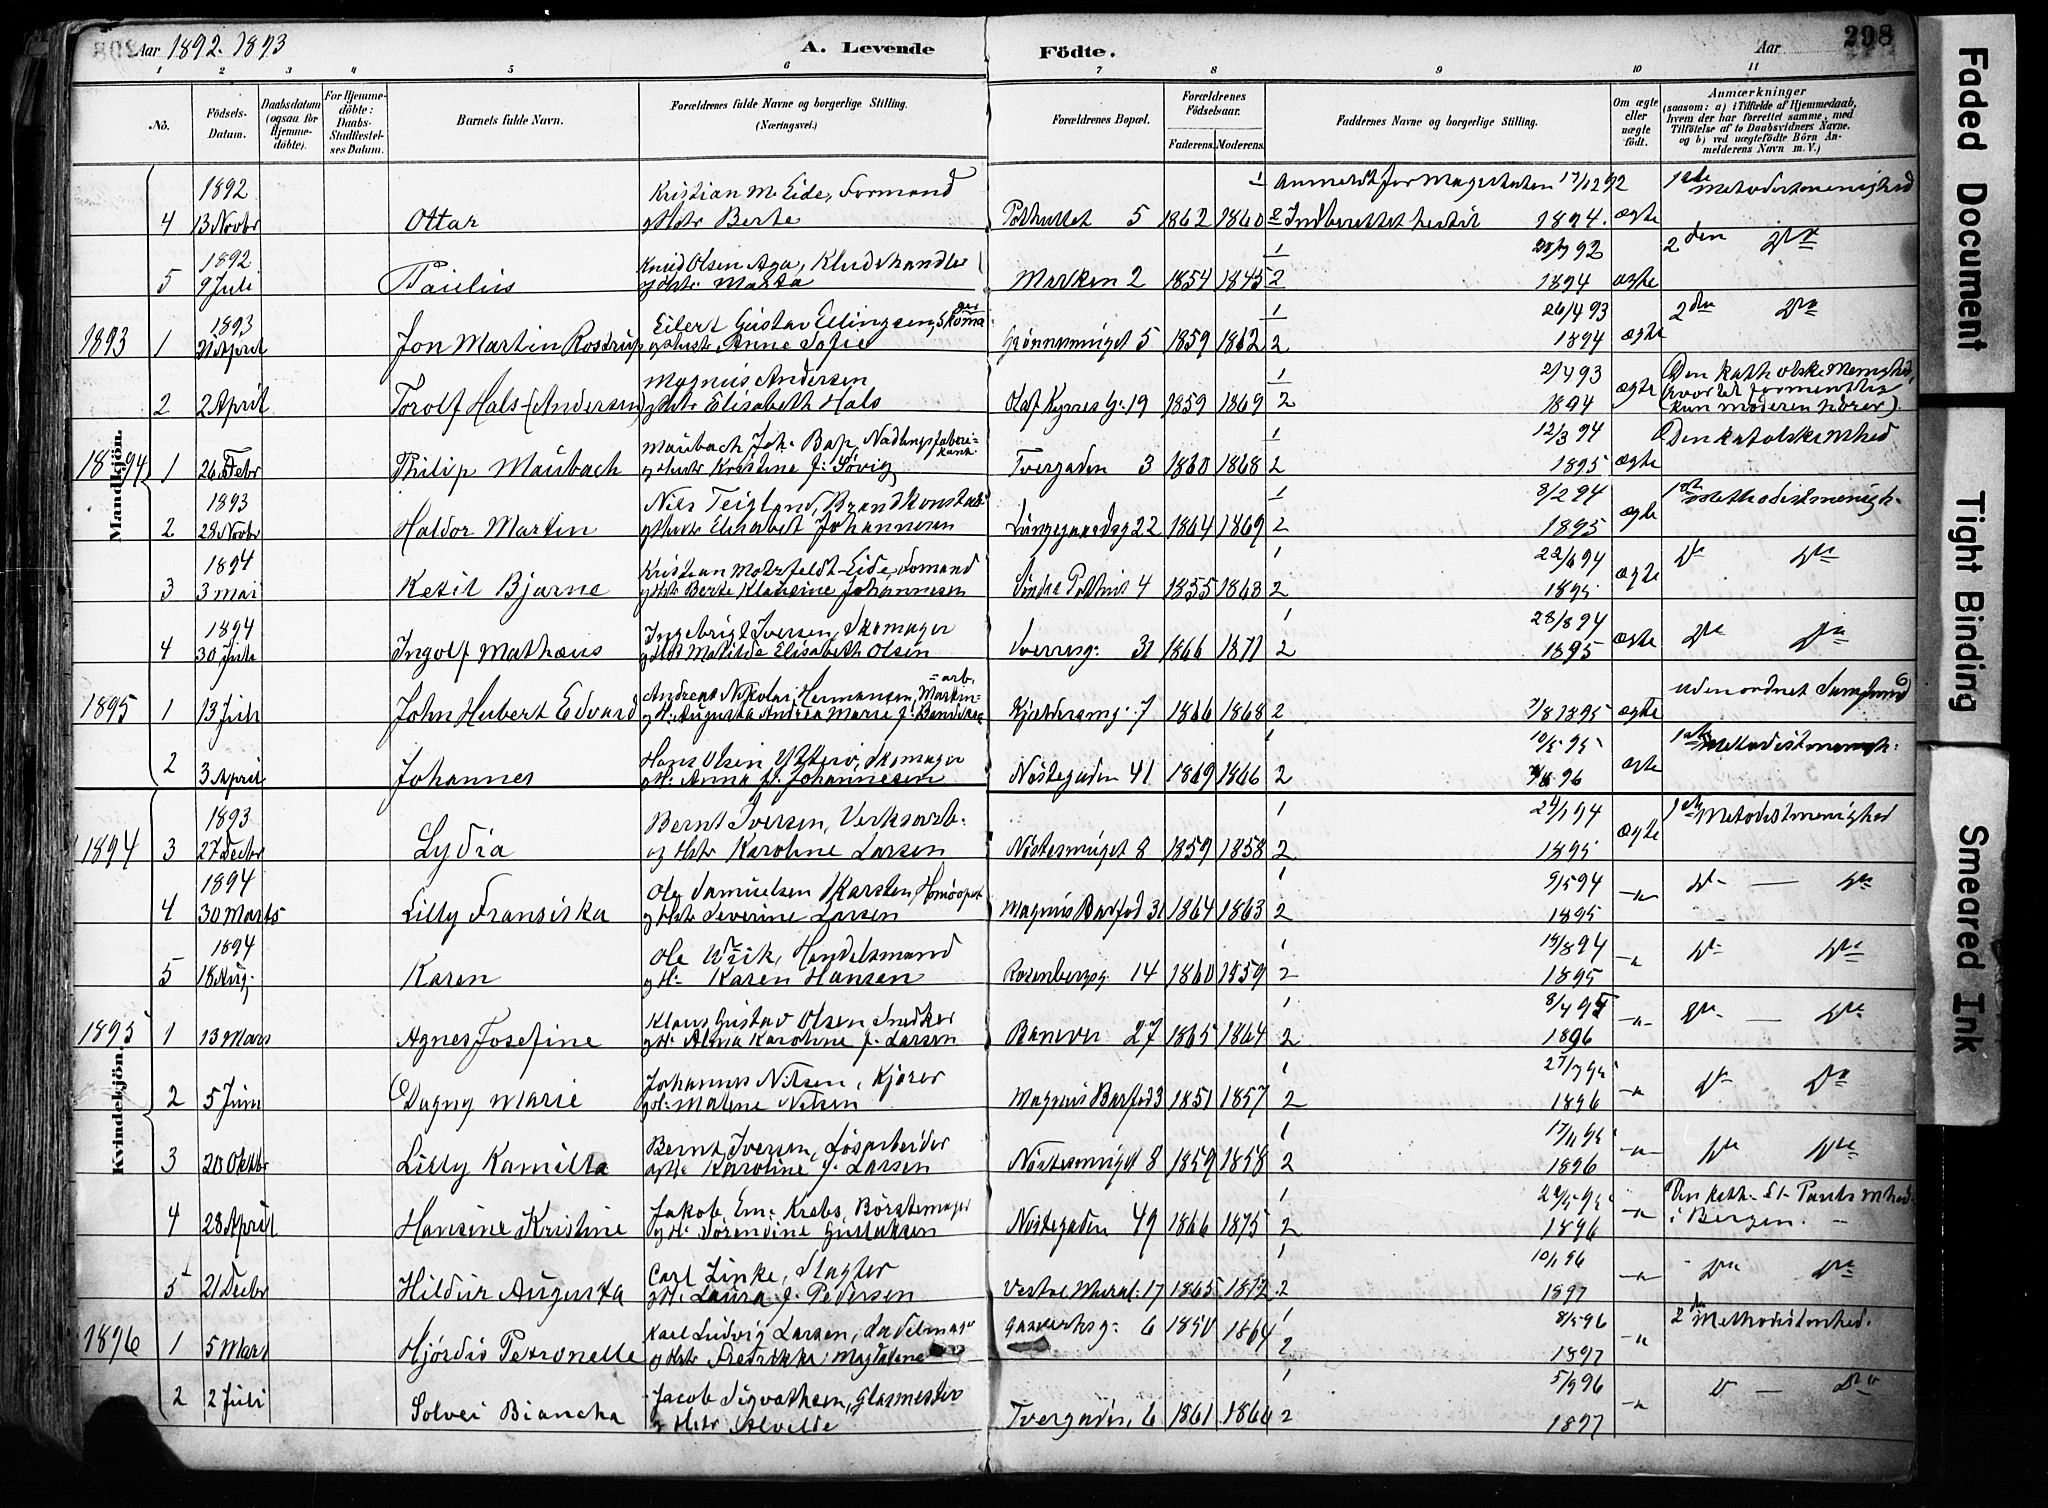 Aar 1892. 1893 A. Levende Födte. Aar 298
1 2 3 4 5 6 7 8 9 10 11
No. Födsels-Datum. Daabsdatum (ogsaa for Hjemme-döbte). For Hjemme-döbte: Daabs-Stadfæstel-ses Datum. Barnets fulde Navn. Forældrenes fulde Navne og borgerlige Stilling. (Næringsvei.) Forældrenes Bopæl. Forældrenes Födselsaar. Faderens. Moderens. Faddernes Navne og borgerlige Stilling. Om ægte eller uægte födt. Anmærkninger (saasom: a) i Tilfælde af Hjemmedaab, hvem der har forrettet samme, med Tilföielse af to Daabsvidners Navne, og b) ved uægtefödte Börn An-melderens Navn m. V.)
Mandkjön.
1892 Kristian M. Eide, Formand 1 Anmeldt for Magistraten 17/12 92 1ste Metodistmenighed
4 13 Novbr Ottar og Hstr Berte Pothullet 5 1862 1860 2 Indberettet hertil 1894. ægte
1892 Knud Olsen Aga, Kludehandler 1 92 2den Do
5 9 Juli Paulus og Hstr Marta Marken 2 1854 1845 2 1894 ægte
1893 Eilert Gustav Ellingsen, Skomager 1 26/4 93 2den Do
1893 1 21 April Jon Martin Rostrup og Hustr Anne Sofie Grønnesmuget 5 1859 1862 2 1894 ægte
Magnus Andersen 1 2/4 93 Den katholske Menighed,
2 2 April Torolf Hals (Andersen) og Hstr Elisabeth Hals Olaf Kyrres G: 19 1859 1869 2 1894 ægte (hvortil formentlig kun moderen hører).
Maubach Joh: Bap, Nadlingsfabrikant 1 12/3 94 Den katolske mhed
1894 1 26 Febr Philip Maubach og Hustr Kristine f: Søvig Tvergaden 3 1860 1868 2 1895 ægte
1893 Nils Teigland, Brandkonstabel 1 8/2 94 1ste Methodistmenigh.
2 28 Novbr Haldor Martin og Hustr Elisabet Johannesen Lungegaardsg 22 1864 1869 2 1895 ægte
1894 Kristian Motzfeldt Eide, Formand 1 22/6 94 Do Do
3 3 Mai Ketil Bjarne og Hstr Berte Klausine Johannesen Søndre Pothus 4 1855 1863 2 1895 ægte
1894 Ingebrigt Iversen, Skomager 1 28/8 94
4 30 Juli Ingolf Mathæus og Hst Matilde Elisabeth Olsen Sverresg: 31 1866 1871 2 1895 ægte Do Do
Andreas Nikolai Hermansen, Maskin=arb. uden ordnet Samfund
1895 1 13 Juli John Hubert Edvard og H: Augusta Andrea Marie f: Bendixen Kjeldersmg. 7 1866 1868 2 1895 ægte
Hans Olsen Ytterø, Skomager 1 10/5 95 1ste Metodistmenigh:
2 3 April Johannes og H: Anna f. Johannesen Nøstegaden 41 1869 1866 2 96 ægte
Kvindekjön.
1893 Bernt Iversen, Verksarb: 1 24/1 94 1ste Metodistmenighed
1894 3 27 Decbr Lydia og Hstr Karoline Larsen Nøstesmuget 8 1859 1858 2 1895 ægte
1894 Ole Samuelsen Karsten, Homøopat 1 9/5 94 Do — Do
4 30 Marts Lilly Fransiska og Hstr Severine Larsen Magnus Barfod 31 1864 1863 2 1895 –"–
1894 Ole Wiik, Handelsmand 1 94 Do Do
5 18 Aug. Karen og H: Karen Hansen Rosenbergsg. 14 1860 1859 2 1895 –"–
Klaus Gustav Olsen, Snedker 1 8/4 95
1895 1 13 Mars Agnes Josefine og H: Alma Karoline f. Larsen Banever 27 1865 1864 2 1896 –"– Do — Do
Johannes Nilsen, Kjører 1 27/7 95
2 5 Juni Dagny Marie og H: Malene Nilsen Magnus Barfod 3 1851 1857 2 1896 –"– Do Do
Bernt Iversen, Løsarbeider 1 17/11 95
3 20 Oktbr Lilly Kamilla og H: Karoline f. Larsen Nøstesmuget 8 1859 1858 2 1896 –"– Do Do
Jakob Em: Krebs, Børstemager 1 95 Den kath. St. Pauls mhed
4 28 April Hansine Kristine og H: Sørendine Gustafsen Nøstegaden 49 1866 1875 2 1896 –"– i Bergen.
Carl Linke, Slagter 1 10/1 96
5 21 Decbr Hildur Augusta og H: Laura f. Pedersen 17 1865 1872 2 1897 –"– Do Do
Karl Ludvig Larsen, Sadelmager Gasverksg: 6 1850 1864 1 8/5 96 2den Methodistmhed.
1896 1 5 Mars Hjørdis Petronelle og Hstr Fredrikke Magdalene 2 1897 –"–
Jacob Sigvathsen, Glasmester 1 5/9 96 Do — Do
2 2 Juli Solvei Biancha og Hstr Alvilde Tvergaden 6 1861 1866 2 1897 –"–
Faded Document
Tight Binding
Smeared Ink